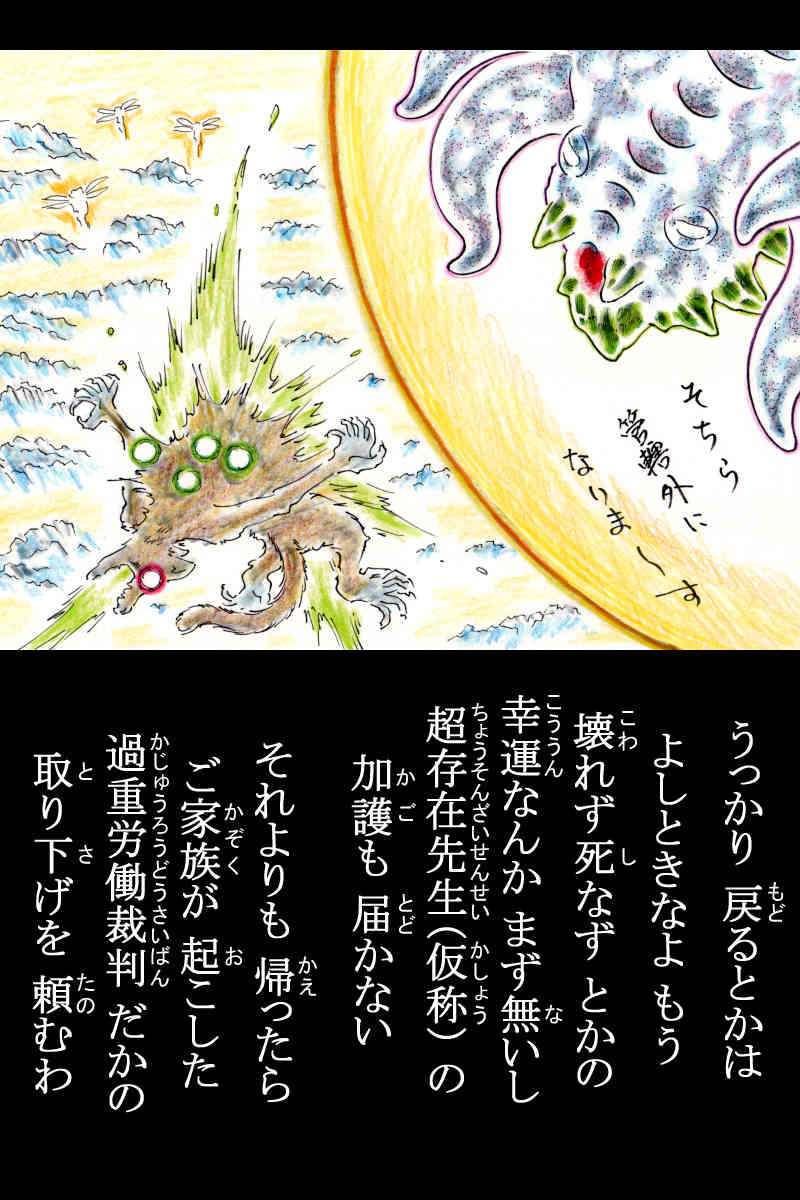 そちら
管轄外に
なりま〜す
うっかり 戻るとかは
よしときなよ もう
壊れず 死なず とかの
幸運なんか まず 無いし
超存在先生(仮称)の
加護も 届かない
それよりも 帰ったら
ご家族が 起こした
過重労働裁判 だかの
取り下げを 頼むわ